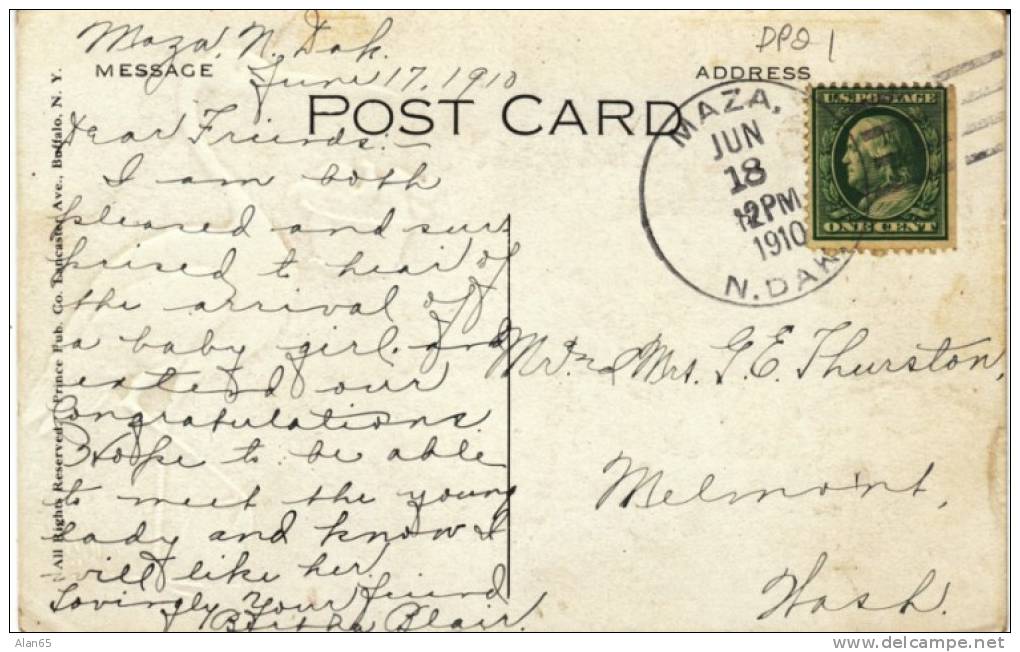 Maza, N. Dak.
June 17, 1910
MESSAGE
POST CARD
DPO 1
ADDRESS
Dear Friends:—
I am both
pleased and sur
prised to hear of
the arrival off
a baby girl. and
extend our
Congratulations.
Hope to be able
to meet the young
lady and know I
will like her.
Lovingly Your friend
Bertha Blair.
All Rights Reserved, Prince Pub. Co. Lancaster Ave., Buffalo, N. Y.
MAZA,
JUN
18
12PM
1910
N. DAK.
U.S. POSTAGE
ONE CENT
Mr. and Mrs. G. E. Thurston,
Melmont,
Wash.
Alan65
www.delcampe.net